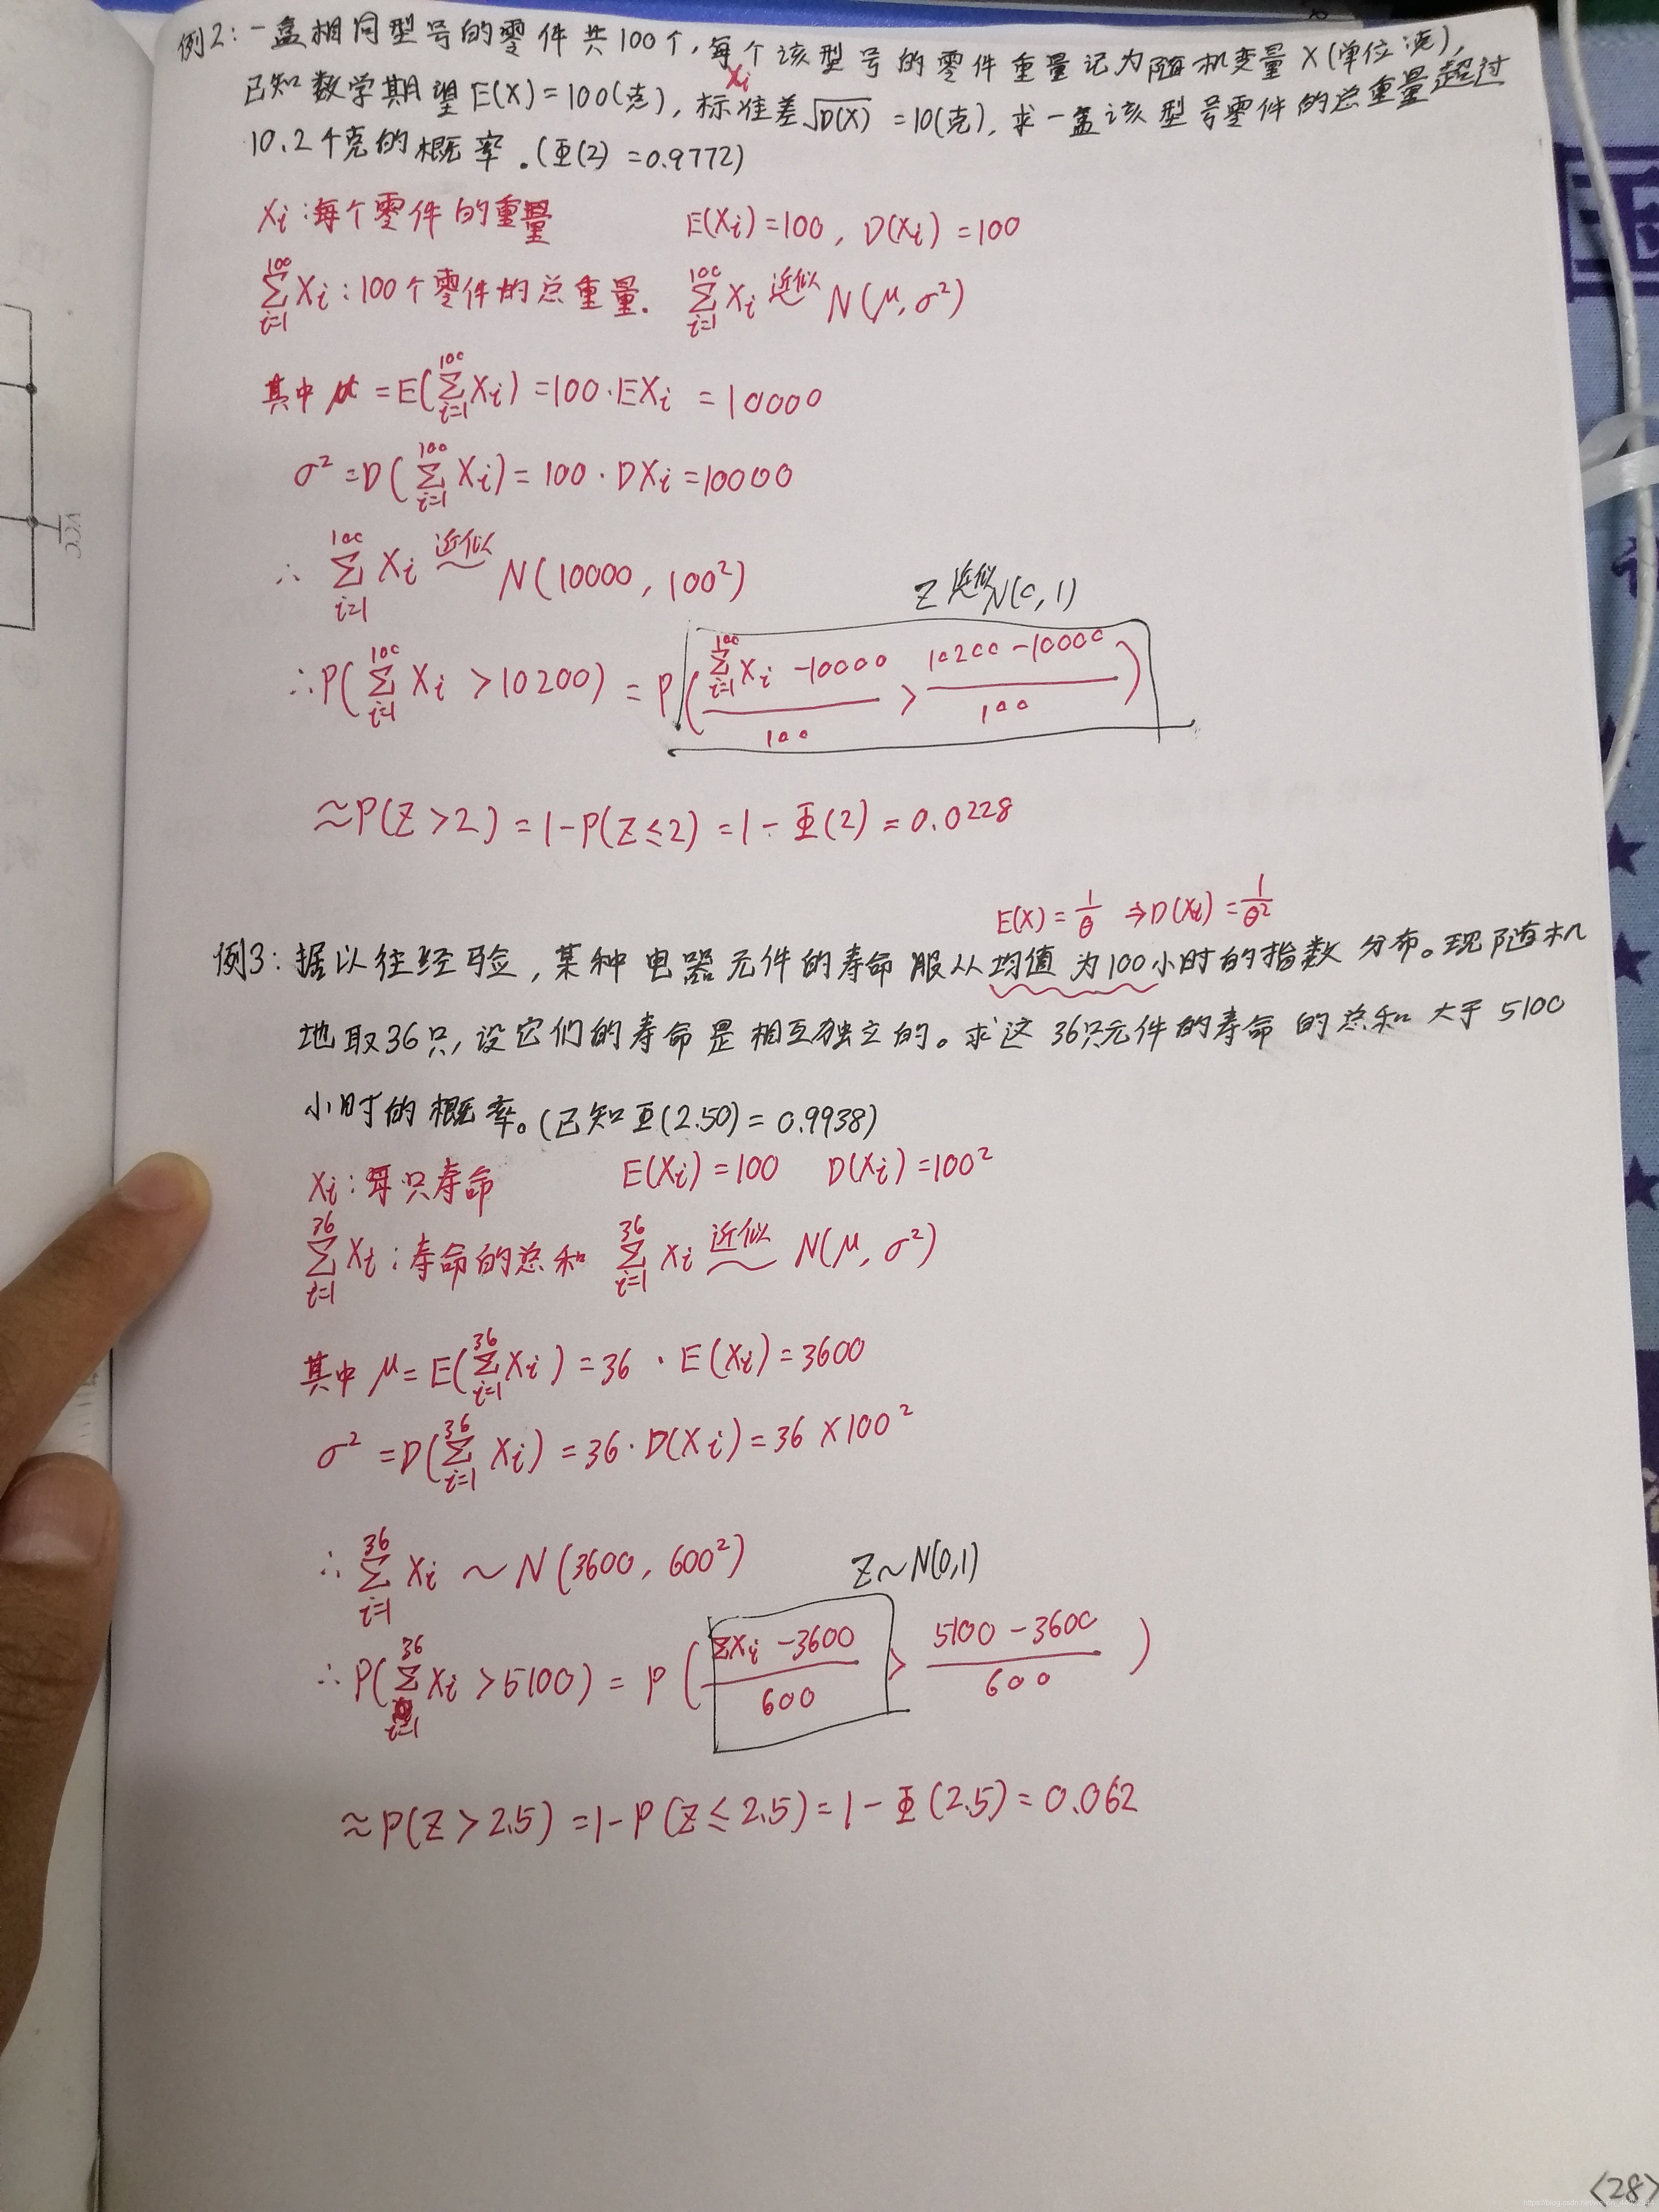 例2：一盒相同型号的零件共100个，每个该型号的零件重量记为随机变量X(单位:克)，
Xi
已知数学期望E(X)=100(克)，标准差√D(X) =10(克)，求一盒该型号零件的总重量超过
10.2千克的概率．(Φ(2)=0.9772)
Xi：每个零件的重量 E(Xi)=100，D(Xi)=100
∑_{i=1}^{100} Xi：100个零件的总重量． ∑_{i=1}^{100} Xi 近似~ N(μ,σ²)
其中 μ=E(∑_{i=1}^{100} Xi)=100·EXi=10000
σ²=D(∑_{i=1}^{100} Xi)=100·DXi=10000
∴ ∑_{i=1}^{100} Xi 近似~ N(10000，100²)
Z 近似~ N(0,1)
∴P(∑_{i=1}^{100} Xi >10200) = P((∑_{i=1}^{100} Xi -10000)/100 > (10200-10000)/100)
≈P(Z>2)=1-P(Z≤2)=1-Φ(2)=0.0228
E(X)=1/θ ⇒D(Xi)=1/θ²
例3：据以往经验，某种电器元件的寿命服从均值为100小时的指数分布。现随机
地取36只，设它们的寿命是相互独立的。求这36只元件的寿命的总和大于5100
小时的概率。(已知Φ(2.50)=0.9938)
Xi：每只寿命 E(Xi)=100 D(Xi)=100²
∑_{i=1}^{36} Xi：寿命的总和 ∑_{i=1}^{36} Xi 近似~ N(μ,σ²)
其中 μ=E(∑_{i=1}^{36} Xi)=36·E(Xi)=3600
σ²=D(∑_{i=1}^{36} Xi)=36·D(Xi)=36×100²
∴ ∑_{i=1}^{36} Xi ~ N(3600，600²)
Z~N(0,1)
∴P(∑_{i=1}^{36} Xi >5100) = P((∑Xi -3600)/600 > (5100-3600)/600)
≈P(Z>2.5)=1-P(Z≤2.5)=1-Φ(2.5)=0.062
<28>
VCC